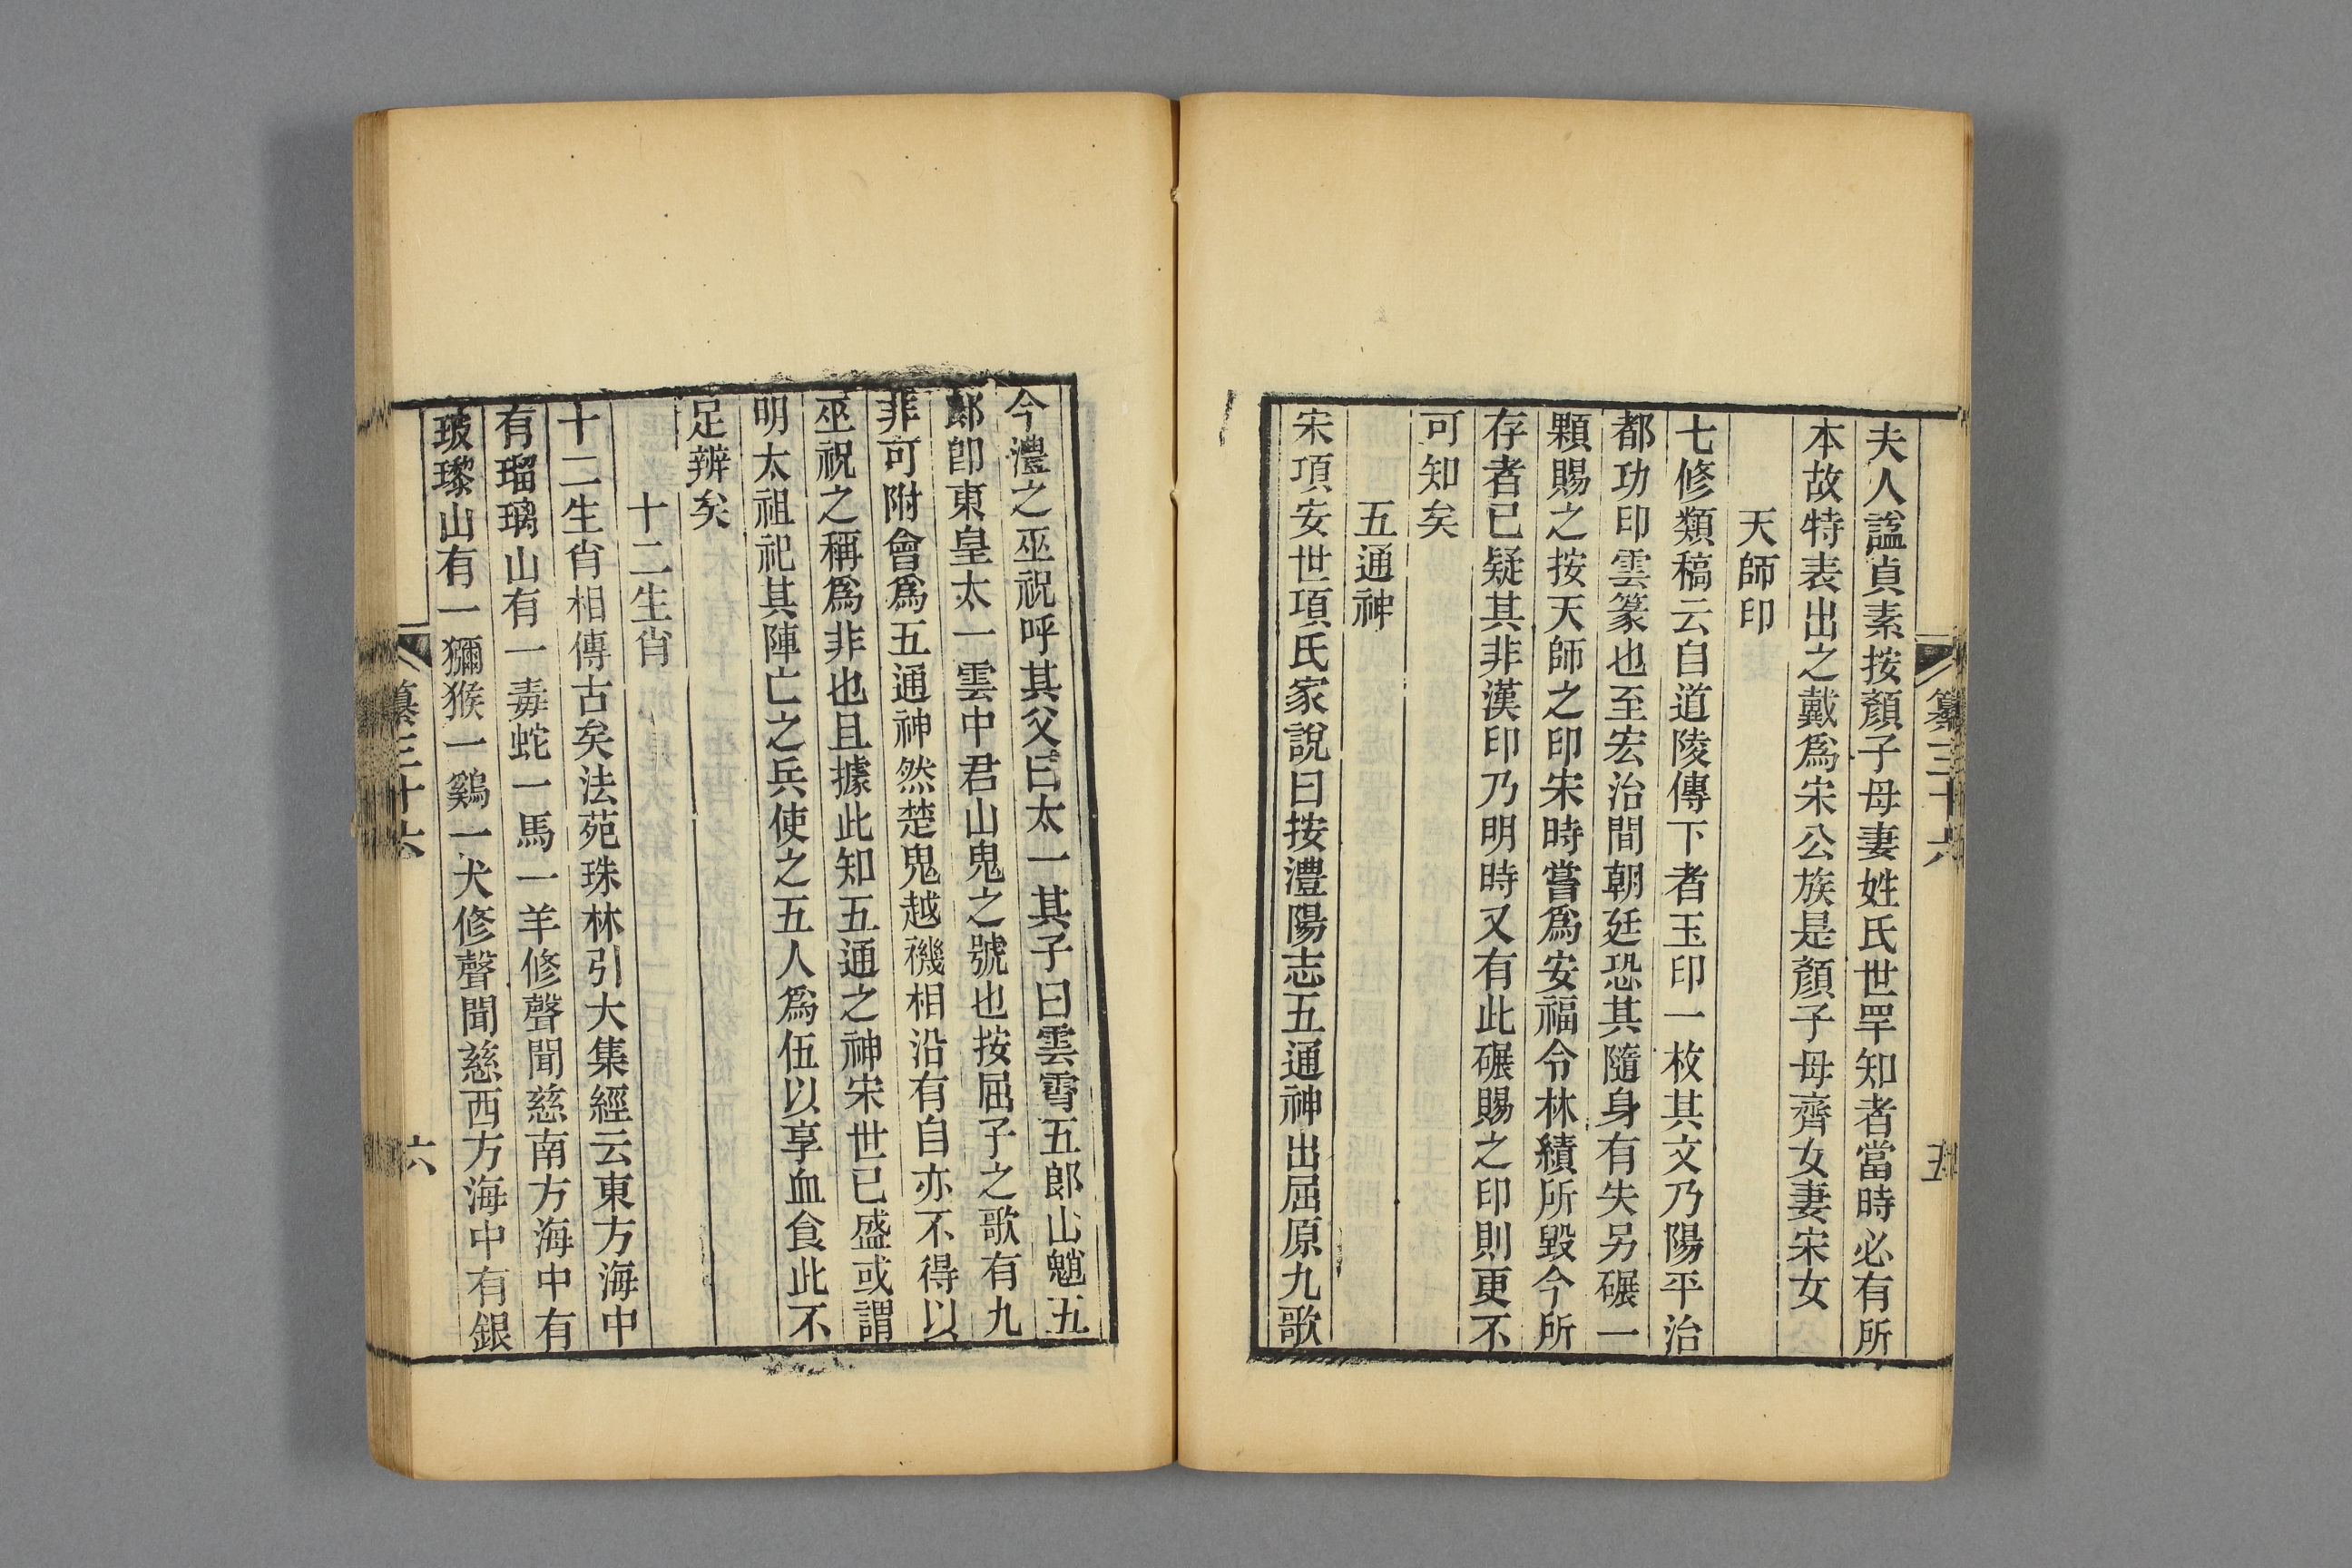 纂三十六
五
夫人謚貞素按顏子母妻姓氏世罕知者當時必有所
本故特表出之戴爲宋公族是顏子母齊女妻宋女
天師印
七修類稿云自道陵傳下者玉印一枚其文乃陽平治
都功印雲篆也至宏治間朝廷恐其隨身有失另碾一
顆賜之按天師之印宋時嘗爲安福令林績所毀今所
存者已疑其非漢印乃明時又有此碾賜之印則更不
可知矣
五通神
宋項安世項氏家說曰按澧陽志五通神出屈原九歌
今澧之巫祝呼其父曰太一其子曰雲霄五郎山魈五
郎卽東皇太一雲中君山鬼之號也按屈子之歌有九
非可附會爲五通神然楚鬼越禨相沿有自亦不得以
巫祝之稱爲非也且據此知五通之神宋世已盛或謂
明太祖祀其陣亡之兵使之五人爲伍以享血食此不
足辨矣
十二生肖
十二生肖相傳古矣法苑珠林引大集經云東方海中
有瑠璃山有一毒蛇一馬一羊修聲聞慈南方海中有
玻瓈山有一獼猴一鷄一犬修聲聞慈西方海中有銀
纂三十六
六